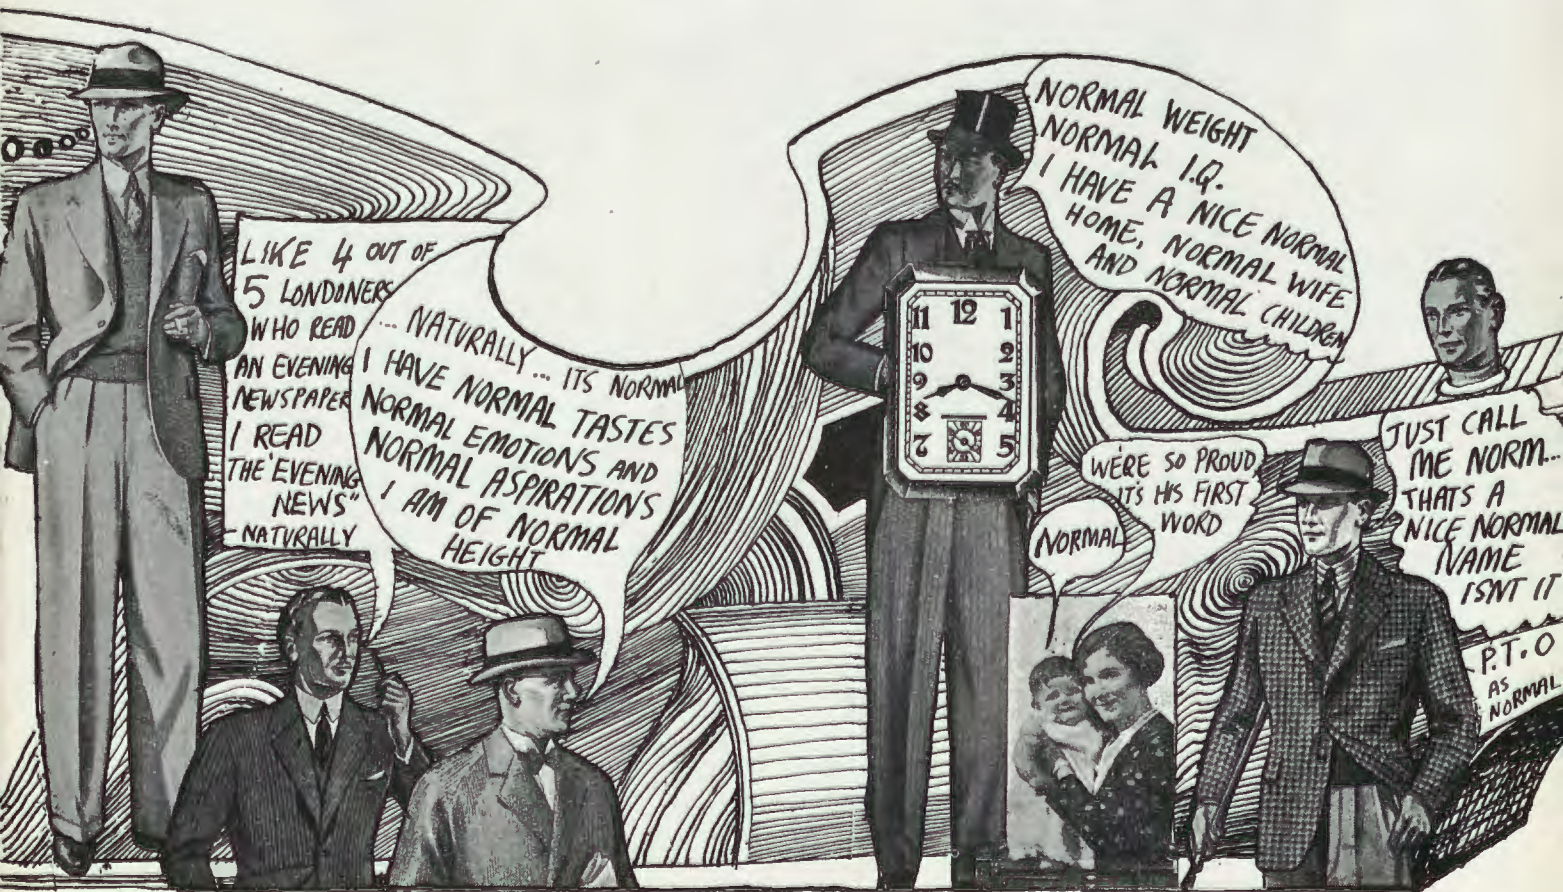 LIKE 4 OUT OF
5 LONDONERS
WHO READ
AN EVENING
NEWSPAPER
I READ
THE "EVENING
NEWS"
- NATURALLY
... NATURALLY... ITS NORMAL
I HAVE NORMAL TASTES
NORMAL EMOTIONS AND
NORMAL ASPIRATIONS
I AM OF NORMAL
HEIGHT
NORMAL WEIGHT
NORMAL I.Q.
I HAVE A NICE NORMAL
HOME, NORMAL WIFE
AND NORMAL CHILDREN
11 12 1
10 2
9 3
8 4
7 5
NORMAL
WE'RE SO PROUD
ITS HIS FIRST
WORD
JUST CALL
ME NORM...
THATS A
NICE NORMAL
NAME
ISNT IT
P.T.O
AS
NORMAL